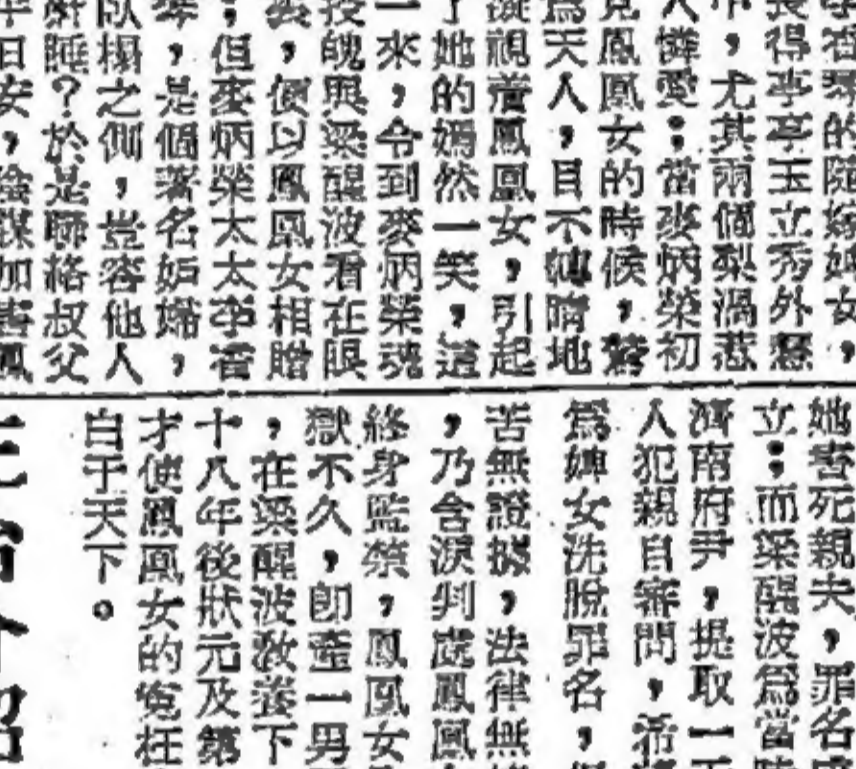 李香琴的隨嫁婢女，
長得亭亭玉立秀外慧
中，尤其兩個梨渦惹
人憐愛；當麥炳榮初
見鳳凰女的時候，驚
為天人，目不他睛地
凝視着鳳凰女，引起
了她的嫣然一笑，這
一來，令到麥炳榮魂
投魄與梁醒波看在眼
，便以鳳凰女相贈
；但麥炳榮太太李香
琴，是個著名妒婦，
臥榻之側，豈容他人
鼾睡？於是聯絡叔父
半日安，陰謀加害鳳
她害死親夫，罪名
立；而梁醒波為當
濟南府尹，提取一
人犯親自審問，希
為婢女洗脫罪名，
苦無證據，法律無
，乃含淚判處鳳凰
終身監禁，鳳凰女
獄不久，即產一男
，在梁醒波教養下
十八年後狀元及第
才使鳳凰女的寃枉
白于天下。